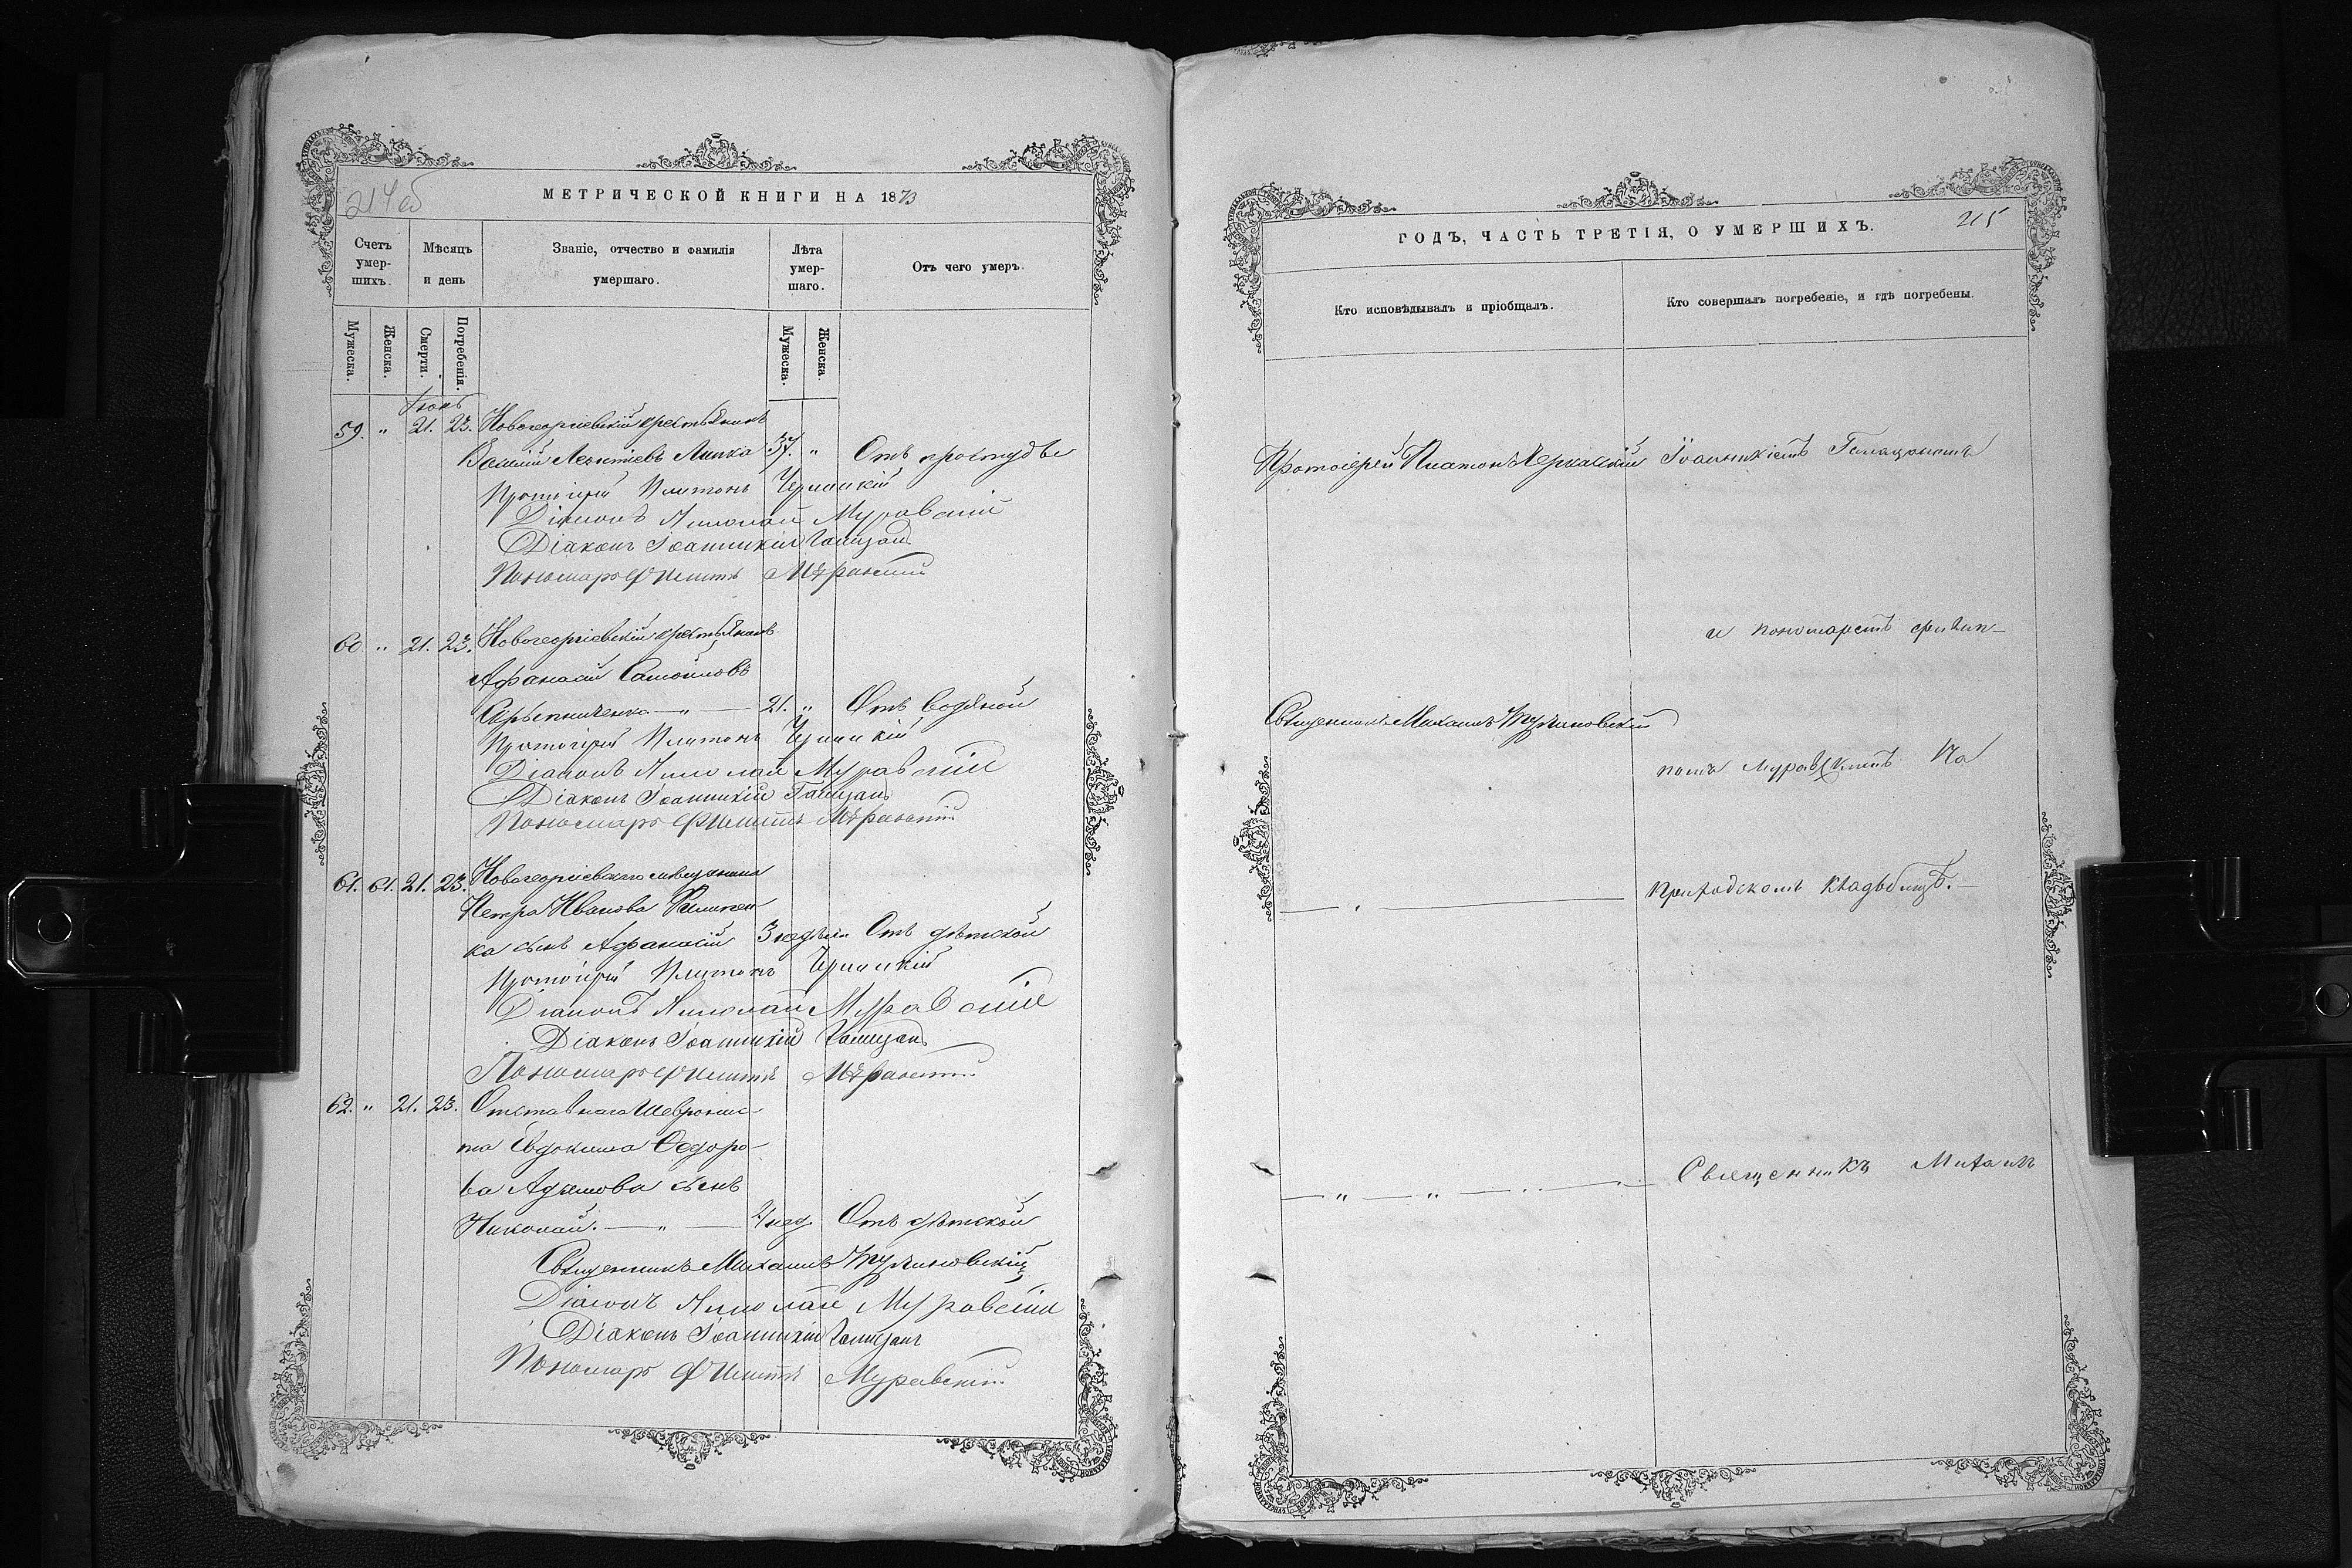 214об
МЕТРИЧЕСКОЙ КНИГИ НА 1873
Счетъ умер-шихъ.
Мѣсяцъ и день
Званіе, отчество и фамилія умершаго.
Лѣта умер-шаго.
Отъ чего умеръ.
Мужеска.
Женска.
Смерти.
Погребенія.
Мужеска.
Женска.
Іюнь
59. " 21. 23. Новогеоргіевскій крестьянинъ
Василій Леонтіевъ Липка 37. " Отъ простуды
Протоіерей Платонъ Черкаскій
Діаконъ Николай Муравскій
Діаконъ Іоанникій
Пономарь Филиппъ Муравскій
60. " 21. 23. Новогеоргіевскій крестьянинъ
Афанасій Самойловъ
21. " Отъ водяной
Протоіерей Платонъ Черкаскій
Діаконъ Николай Муравскій
Діаконъ Іоанникій
Пономарь Филиппъ Муравскій
61. 61. 21. 23. Новогеоргіевскаго мѣщанина
Петра Иванова
ка сынъ Афанасій 3 недѣли Отъ дѣтской
Протоіерей Платонъ Черкаскій
Діаконъ Николай Муравскій
Діаконъ Іоанникій
Пономарь Филиппъ Муравскій
62. " 21. 23. Отставнаго Шеврони­с-
та Евдокима Ѳедоро-
ва Адамова сынъ
Николай. — " — 2 нед. Отъ дѣтской
Священникъ Михаилъ
Діаконъ Николай Муравскій
Діаконъ Іоанникій
Пономарь Филиппъ Муравскій
ГОДЪ, ЧАСТЬ ТРЕТІЯ, О УМЕРШИХЪ.
215
Кто исповѣдывалъ и пріобщалъ.
Кто совершалъ погребеніе, и гдѣ погребены.
Протоіерей Платонъ Черкаскій Іоанникіемъ
и пономаремъ Филип-
Священникъ Михаилъ
помъ Муравскимъ На
Приходскомъ Кладбищѣ. —
— " — " — Священникъ Михаилъ